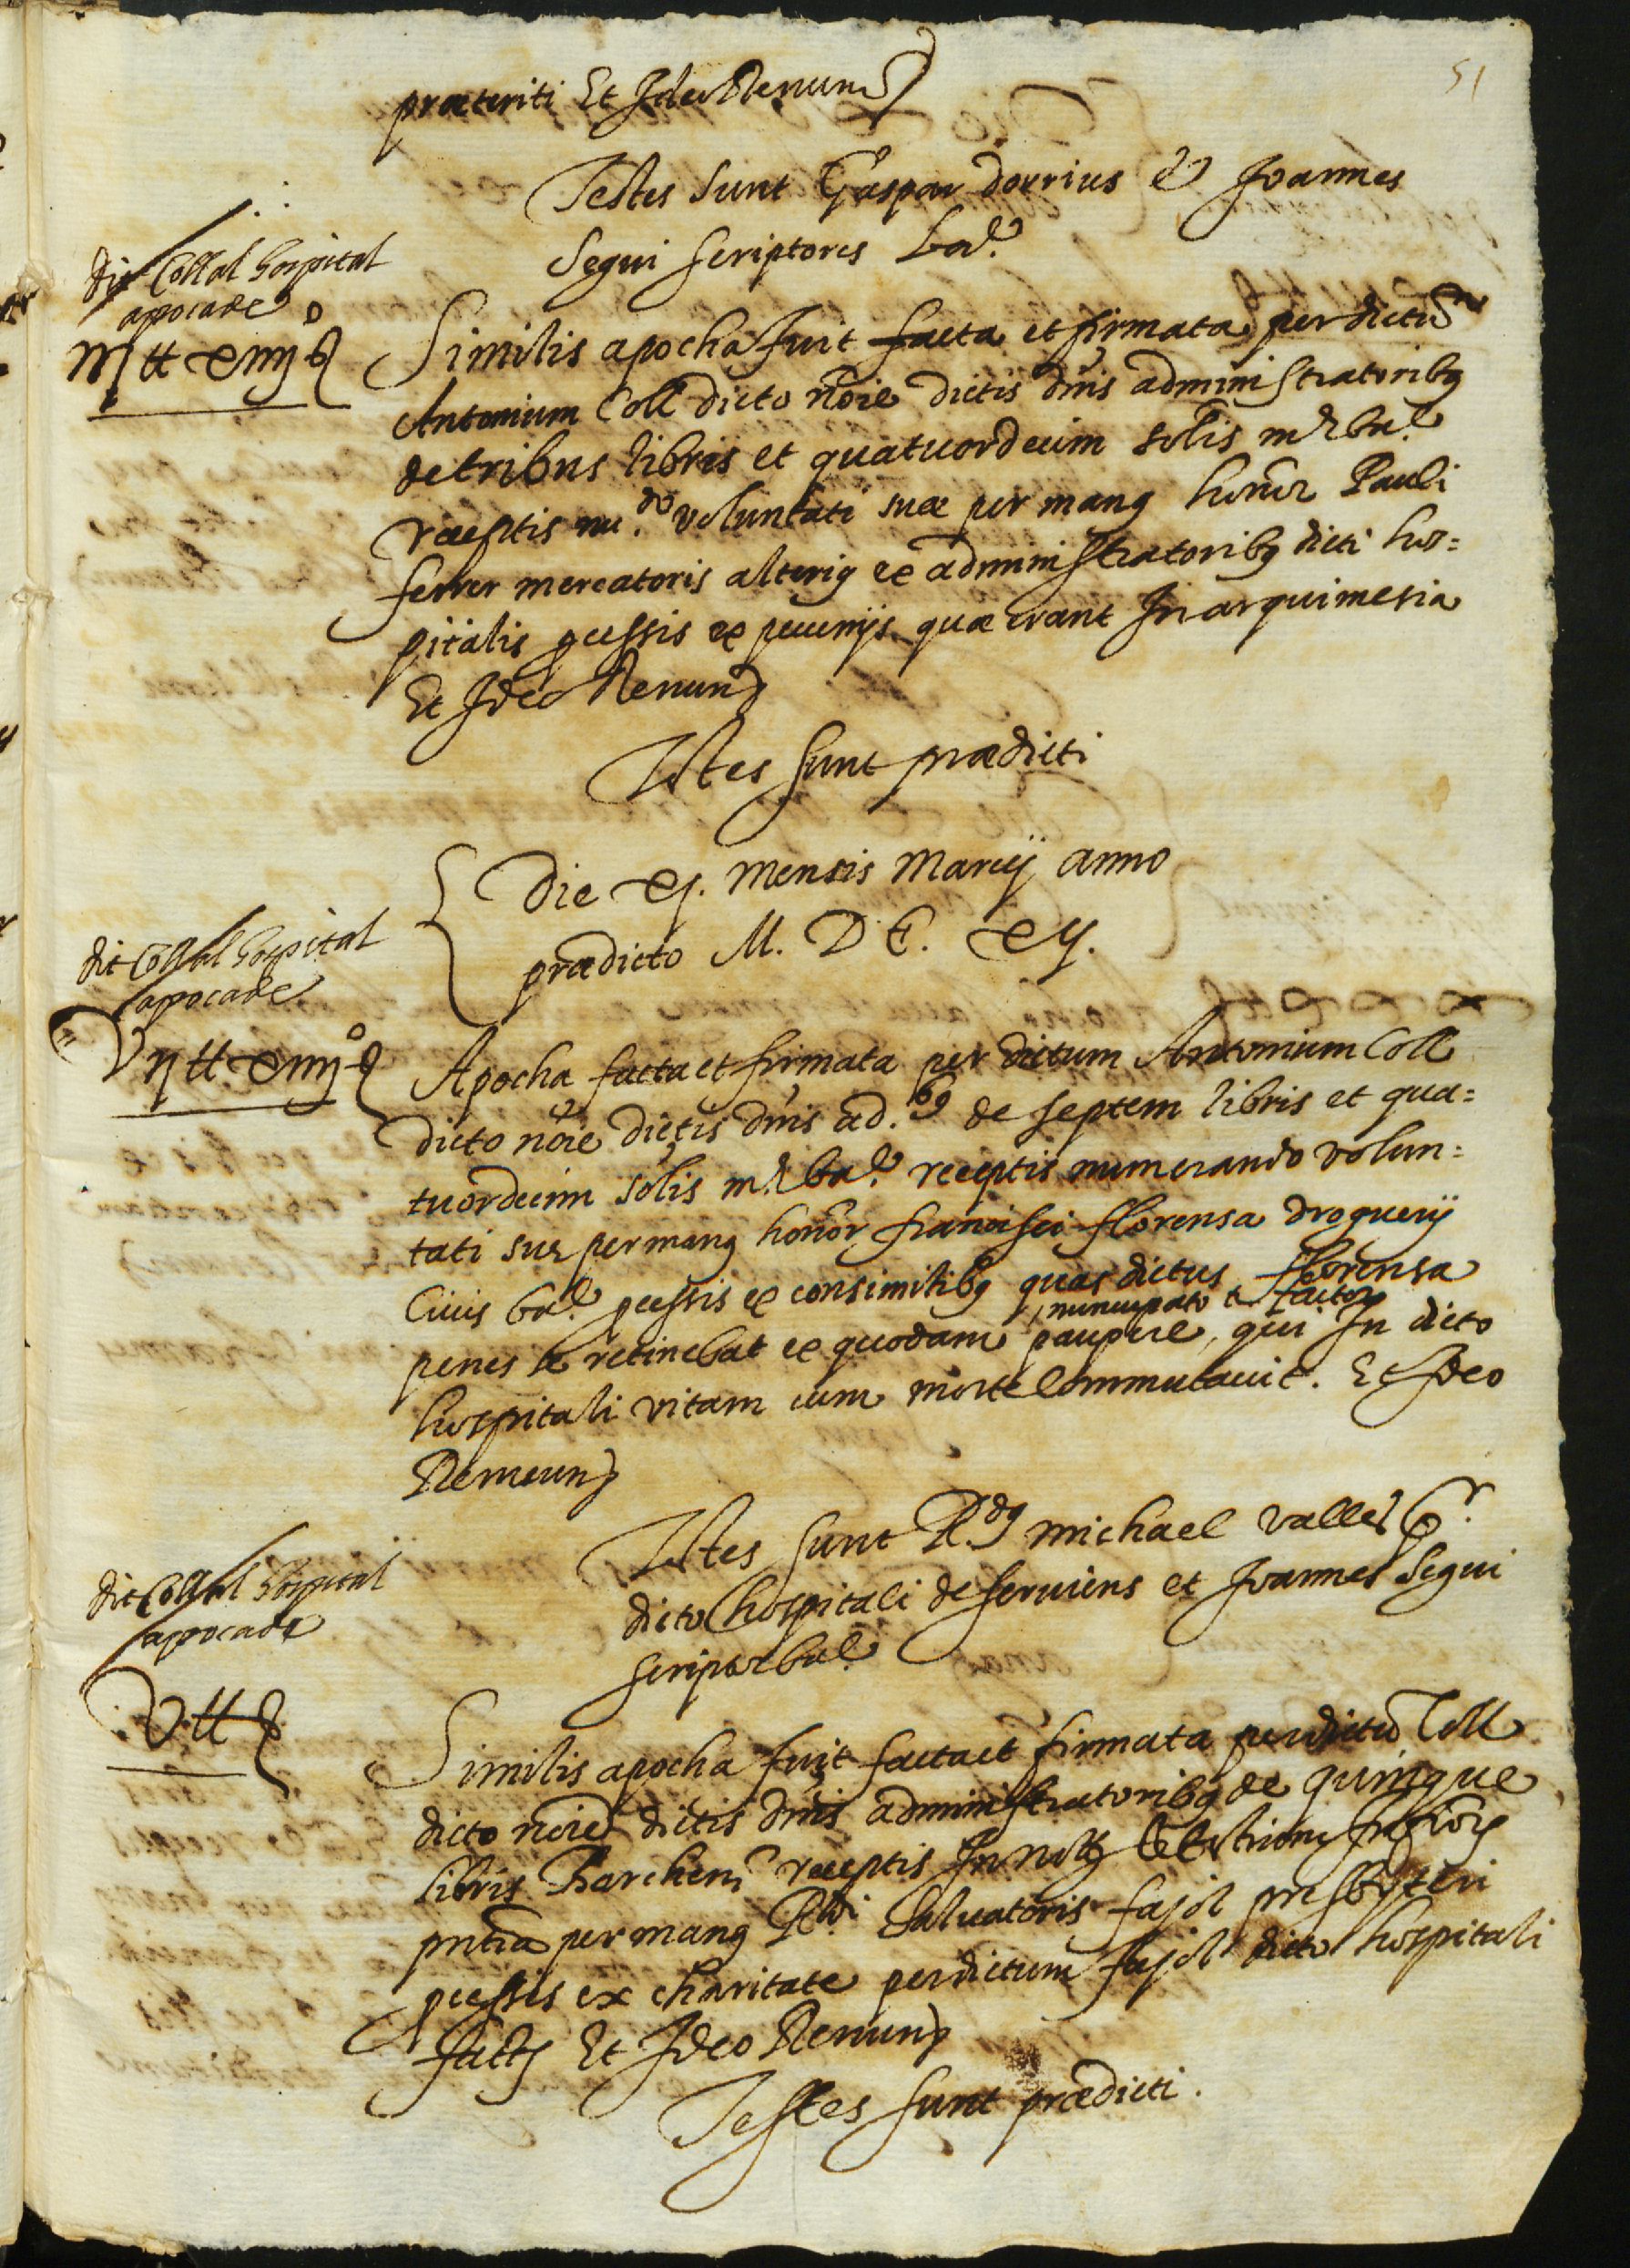 51
præteriti Et Ideo Renun
Testes sunt Gaspar dorrius et Joannes
Segui scriptores bar.
dit Collal hospital
apocade
iij ll xiiij s
Similis apocha fuit facta et firmata per dictũ
Antonium Coll dicto nõie dictis dnĩs administratoribq
de tribus libris et quatuordecim solis
receptis nu.do voluntati suæ per manq honor Pauli
ferrer mercatoris alteriq ex administratoribq dicti hos=
pitalis pcessis ex pecunijs quæ erant In arquimesia
Et Ideo Renun
Testes sunt prædicti
Die xj. mensis Marcij anno
prædicto M. D C. xij.
dit Collal hospital
apocade
vij ll xiiij s
Apocha facta et firmata per dictum Antonium Coll
dicto nõie dictis dnĩs ad.bq de septem libris et qua=
tuordecim solis receptis numerando volun=
tati suæ per manq honor francisci florensa droguerij
Civis bar. pcessis ex consimilibq quas dictus florensa
nuncupato
penes se retinebat ex quodam paupere, qui In dicto
hospitali vitam cum morte Commutavit. Et Ideo
Renun
Testes sunt R.dq michael valles pr
dicto hospitali deserviens et Joannes Segui
scriptor bar.
dit Collal hospital
apocade
v ll
Similis apocha fuit facta et firmata per dictũ Coll
dicto nõie dictis dnĩs administratoribq de quinque
libris Barchen receptis In
pntia per manq R.di Salvatoris fajol presbyteri
pcessis ex charitate per dictum fajol dicto hospitali
facta Et Ideo Renun
Testes sunt prædicti.